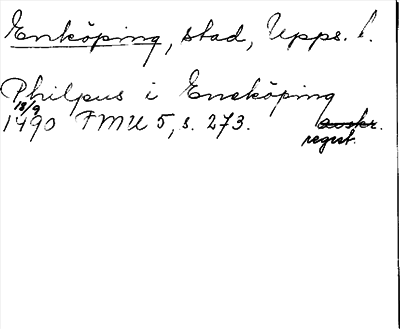 Enköping, stad, Upps. l.
Philpus i Eneköping
18/9
1490 FMU 5, s. 273. avskr.
regist.